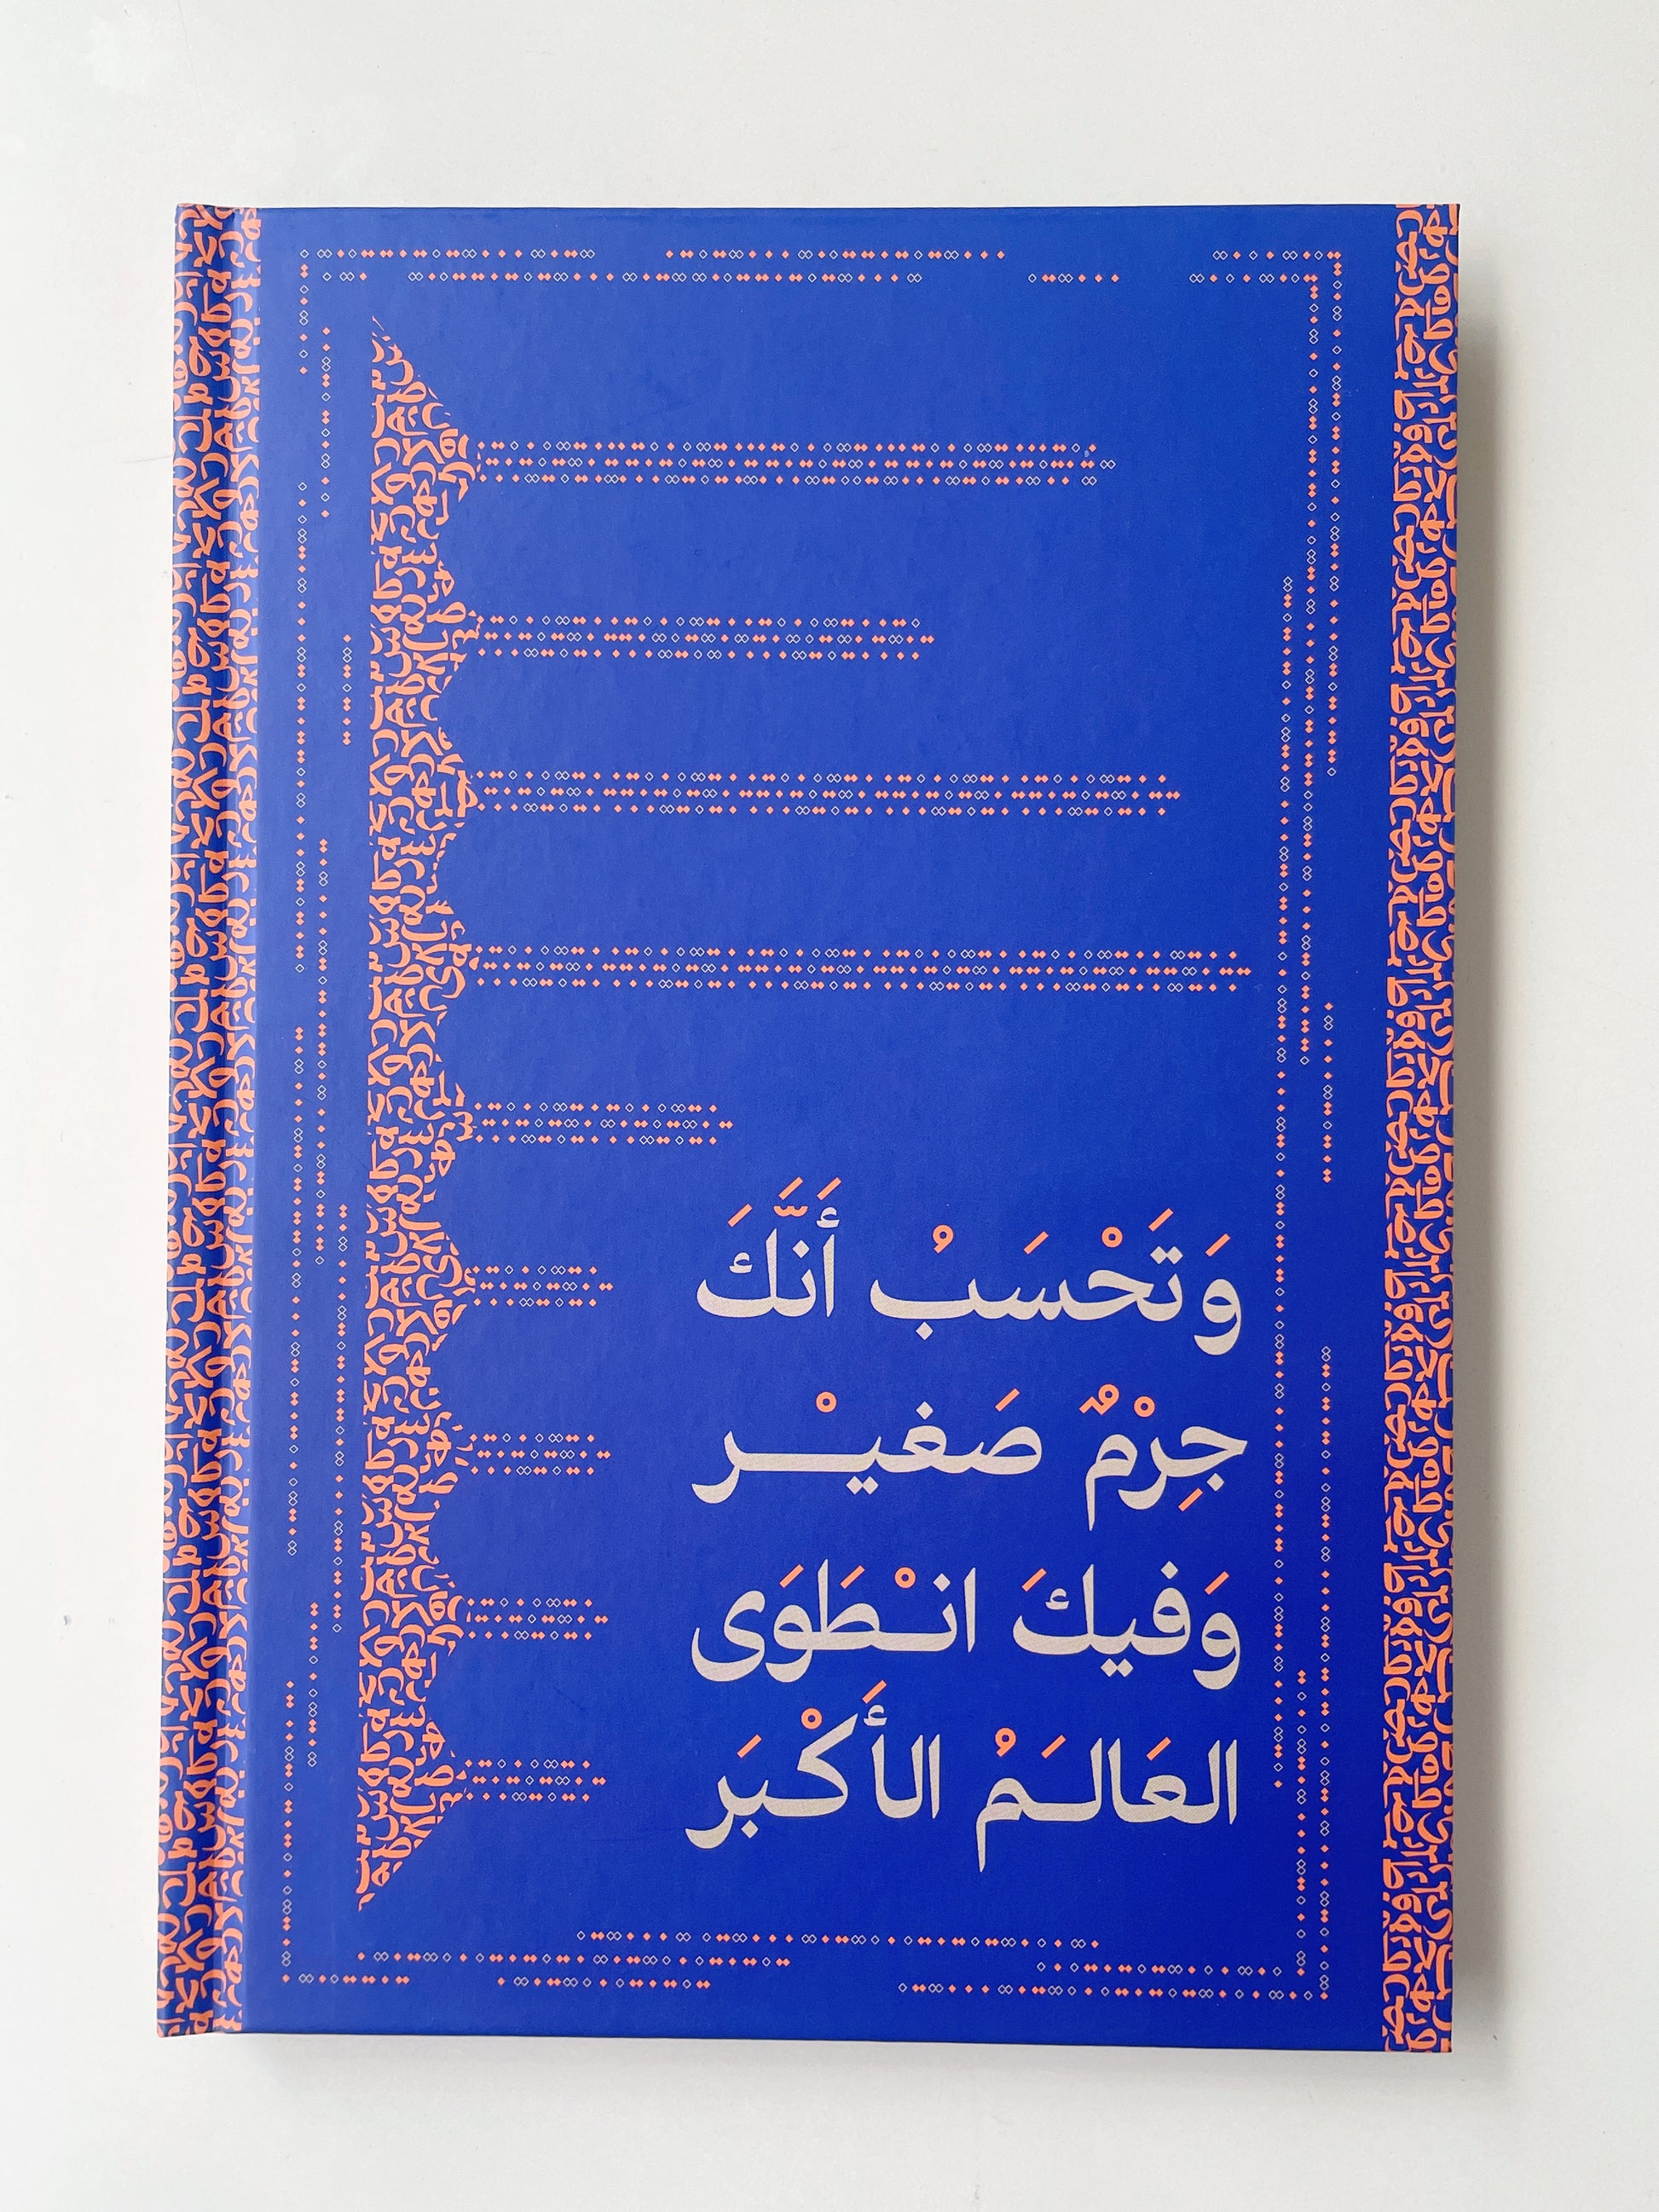 وَتَحْسَبُ أَنَّكَ
جِرْمٌ صَغيْـــر
وَفيكَ انـْـطَوَى
العَالـَـمُ الأَكْبَر